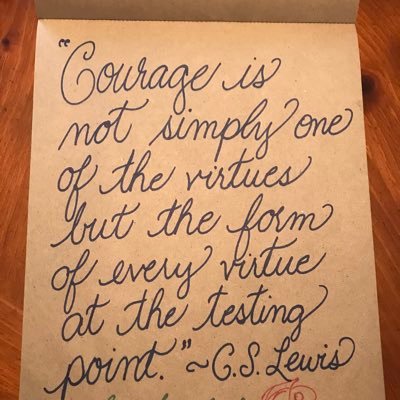 "Courage is
not simply one
of the virtues
but the form
of every virtue
at the testing
point." ~C.S. Lewis